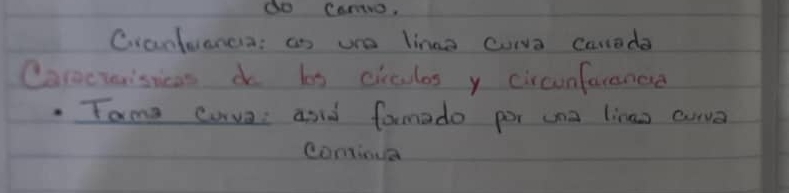 do centro.
Circunferencia: es una linea curva cerrada
Caracteristicas de los círculos y circunferencia
• Forma curva: está formado por una linea curva
continua